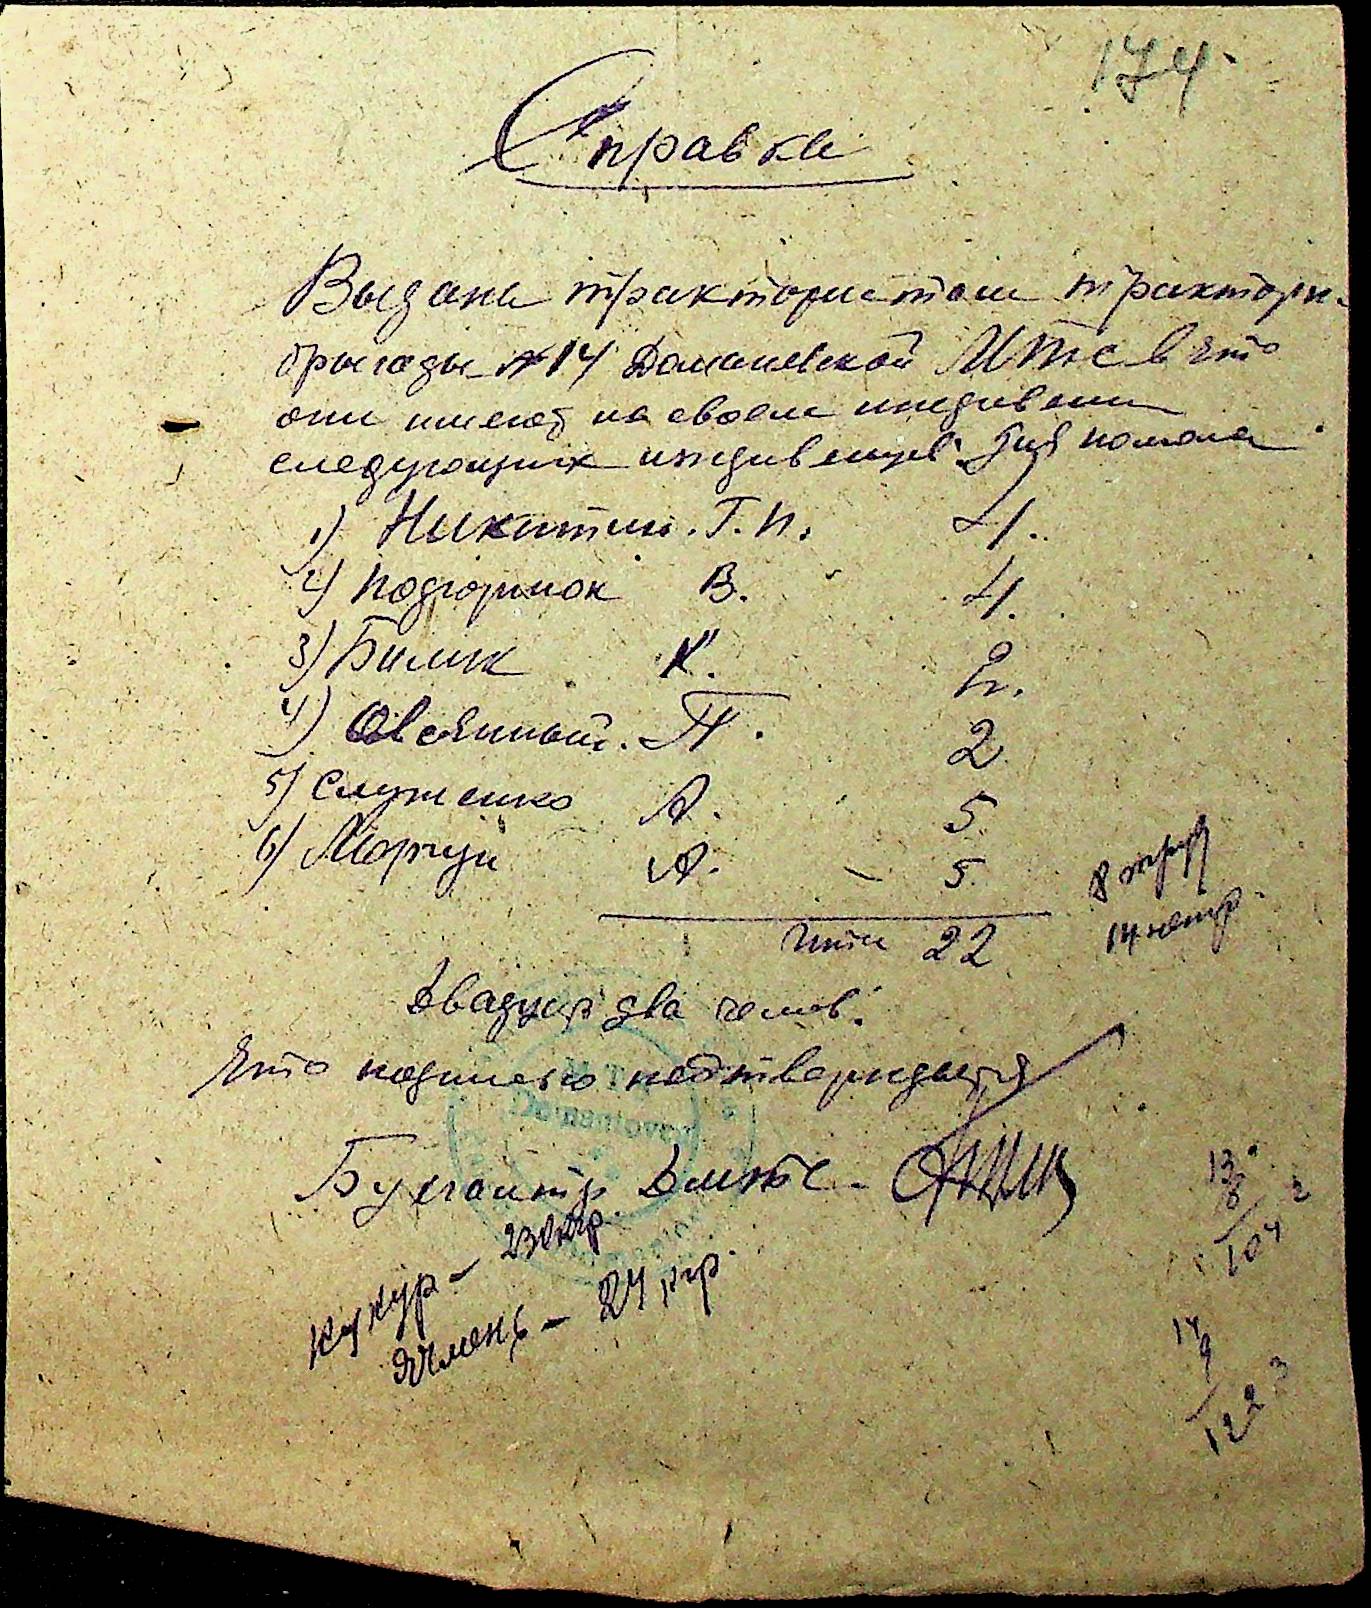 174.
Справка
Выдана трактористам трактори.
бригады №14 Доманевской МТС в что
они имеют на своем иждивении
следующих иждивенцев. Для помола
1) Никитин. Г. П. 4.
2) Подгорнок В. 4.
3) Билык К. 2.
4) Овсяный. П. 2
5) Служенко А. 5
6) Моргун А. - 5.
8 труд
Итог 22
14 нетр.
Двадцать два челов.
Что подписью подтверждается
Бухгалтер ДМТС -
Кукур - 230 кгр.
Ячмень - 24 кгр.
13
8
104 2
14
9
122 3